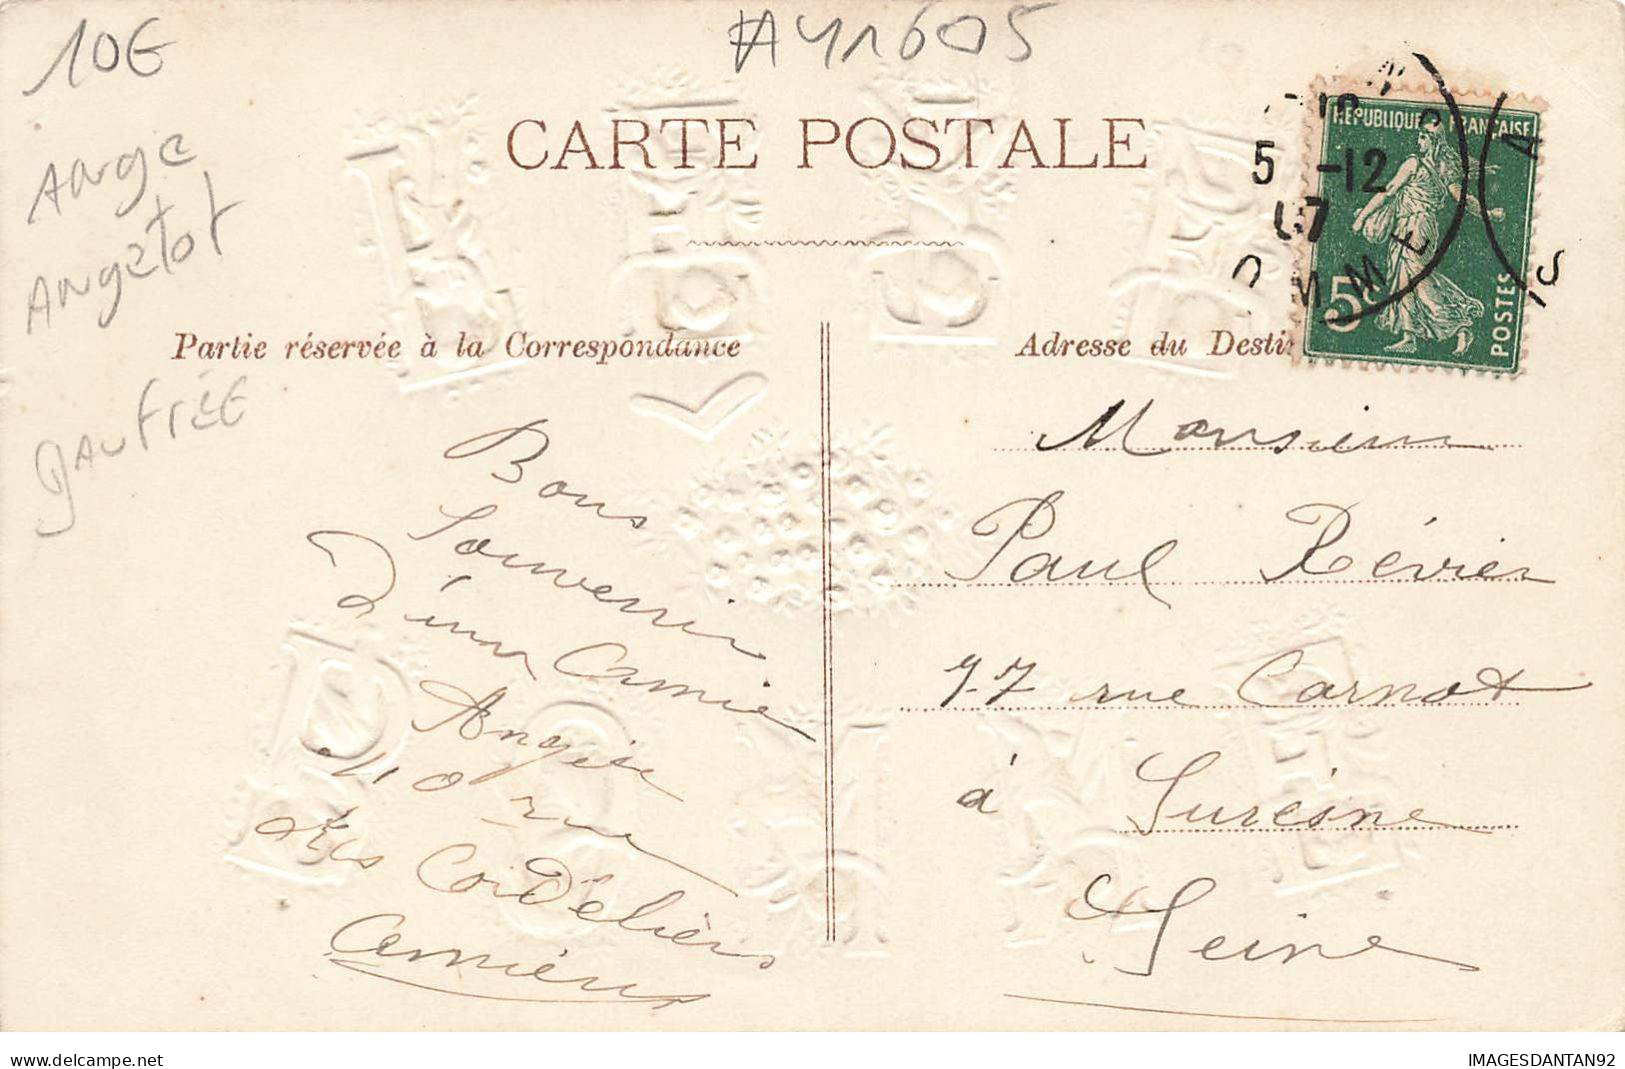 10€
#AY1605
Ange
Angelot
gaufrée
CARTE POSTALE
5 -12
07
MME
RÉPUBLIQUE FRANÇAISE
5c
POSTES
Partie réservée à la Correspondance
Adresse du Desti
Bons
Souvenir
d'une Amie
Angèle
40 rue
des Cordeliers
Amiens
Monsieur
Paul Révier
77 rue Carnot
à Surésne
Seine
IMAGESDANTAN92